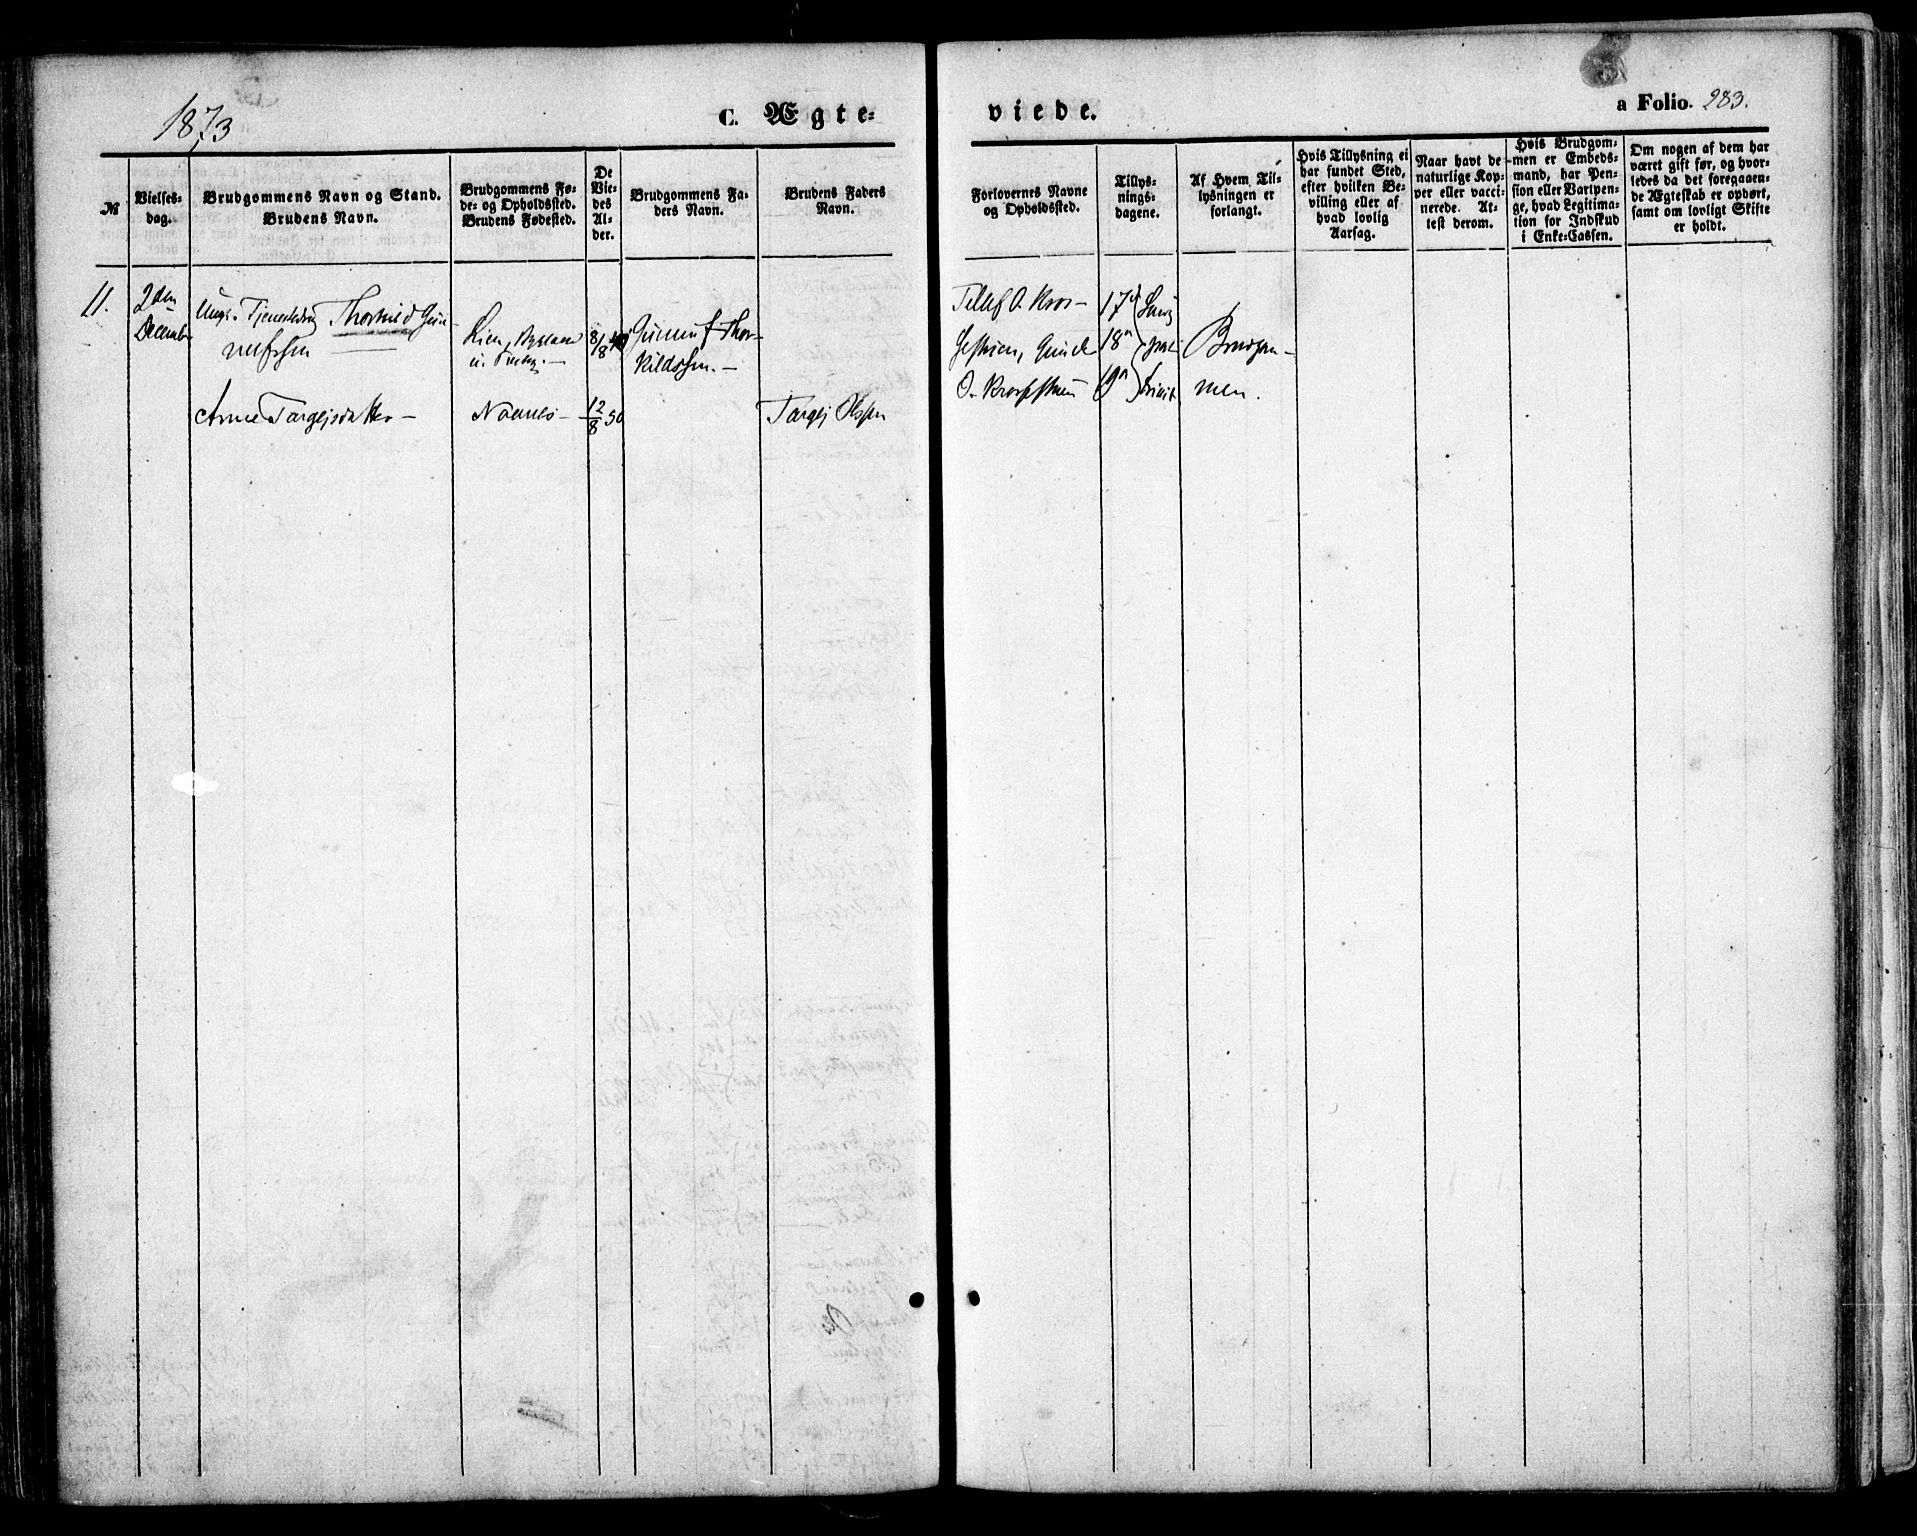 1873
C. Ægte=
viede.
a Folio. 283.
№
Vielses=
dag.
Brudgommens Navn og Stand.
Brudens Navn.
Brudgommens Fø=
de= og Opholdssted.
Brudens Fødested.
De
Vie=
des
Al=
der.
Brudgommens Fa=
ders Navn.
Brudens Faders
Navn.
Forlovernes Navne
og Opholdssted.
Tillys=
nings=
dagene.
Af Hvem Til=
lysningen er
forlangt.
Hvis Tillysning ei
har fundet Sted,
efter hvilken Be=
villing eller af
hvad lovlig
Aarsag.
Naar havt de
naturlige Kop=
per eller vacci=
nerede. At=
test derom.
Hvis Brudgom=
men er Embeds=
mand, har Pen=
sion eller Vartpen=
ge, hvad Legitima=
tion for Indskud
i Enke=Cassen.
Om nogen af dem har
været gift før, og hvor=
ledes da det foregaaen=
de Ægteskab er ophørt,
samt om lovligt Skifte
er holdt.
11.
2den
December
Ungk. Thorkild Gun-
nufssen
Lien,
8/8 48
Gunnuf Thor-
kildssen.-
Anne Targejsdatter-
12/8 50
Targej Olssen
Tellef O.
O.
17
18
19
Brudgom-
men.